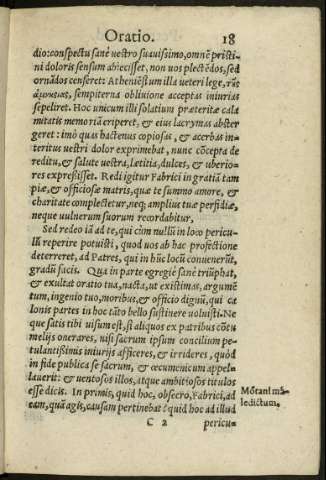 Oratio. 18
dio: conspectu sanè uestro suauissimo, omnē pristi-
ni doloris sensum abiecisset, non uos plectēdos, sed
ornādos censeret: Atheniēsium illa ueteri lege, τῆς
ἀμνηστίας, sempiterna obliuione acceptas iniurias
sepeliret. Hoc unicum illi solatium præteritæ cala
mitatis memoriā eriperet, & eius lacrymas abster
geret: imò quas hactenus copiosas, & acerbas in-
teritus uestri dolor exprimebat, nunc cōcepta de
reditu, & salute uestra, lætitia, dulces, & uberio-
res expressisset. Redi igitur Fabrici in gratiā tam
piæ, & officiosæ matris, quæ te summo amore, &
charitate complectetur, neq; amplius tuæ perfidiæ,
neque uulnerum suorum recordabitur,
Sed redeo iā ad te, qui cùm nullū in loco pericu-
lū reperire potuisti, quod uos ab hac profectione
deterreret, ad Patres, qui in hūc locū conuenerūt,
gradū facis. Qua in parte egregiè sanè triūphat,
& exultat oratio tua, nacta, ut existimas, argumē
tum, ingenio tuo, moribus, & officio dignū, qui ca
lonis partes in hoc tāto bello sustinere uoluisti. Ne
que satis tibi uisum est, si aliquos ex patribus cōtu
melijs onerares, nisi sacrum ipsum concilium pe-
tulantißimis iniurijs afficeres, & irrideres, quòd
in fide publica se sacrum, & œcumenicum appel-
lauerit: & uentosos illos, atque ambitiosos titulos
esse dicis. In primis, quid hoc, obsecro, Fabrici, ad
eam, quā agis, causam pertinebat? quid hoc ad illud
Mōtani ma-
ledictum.
C 2 pericu-